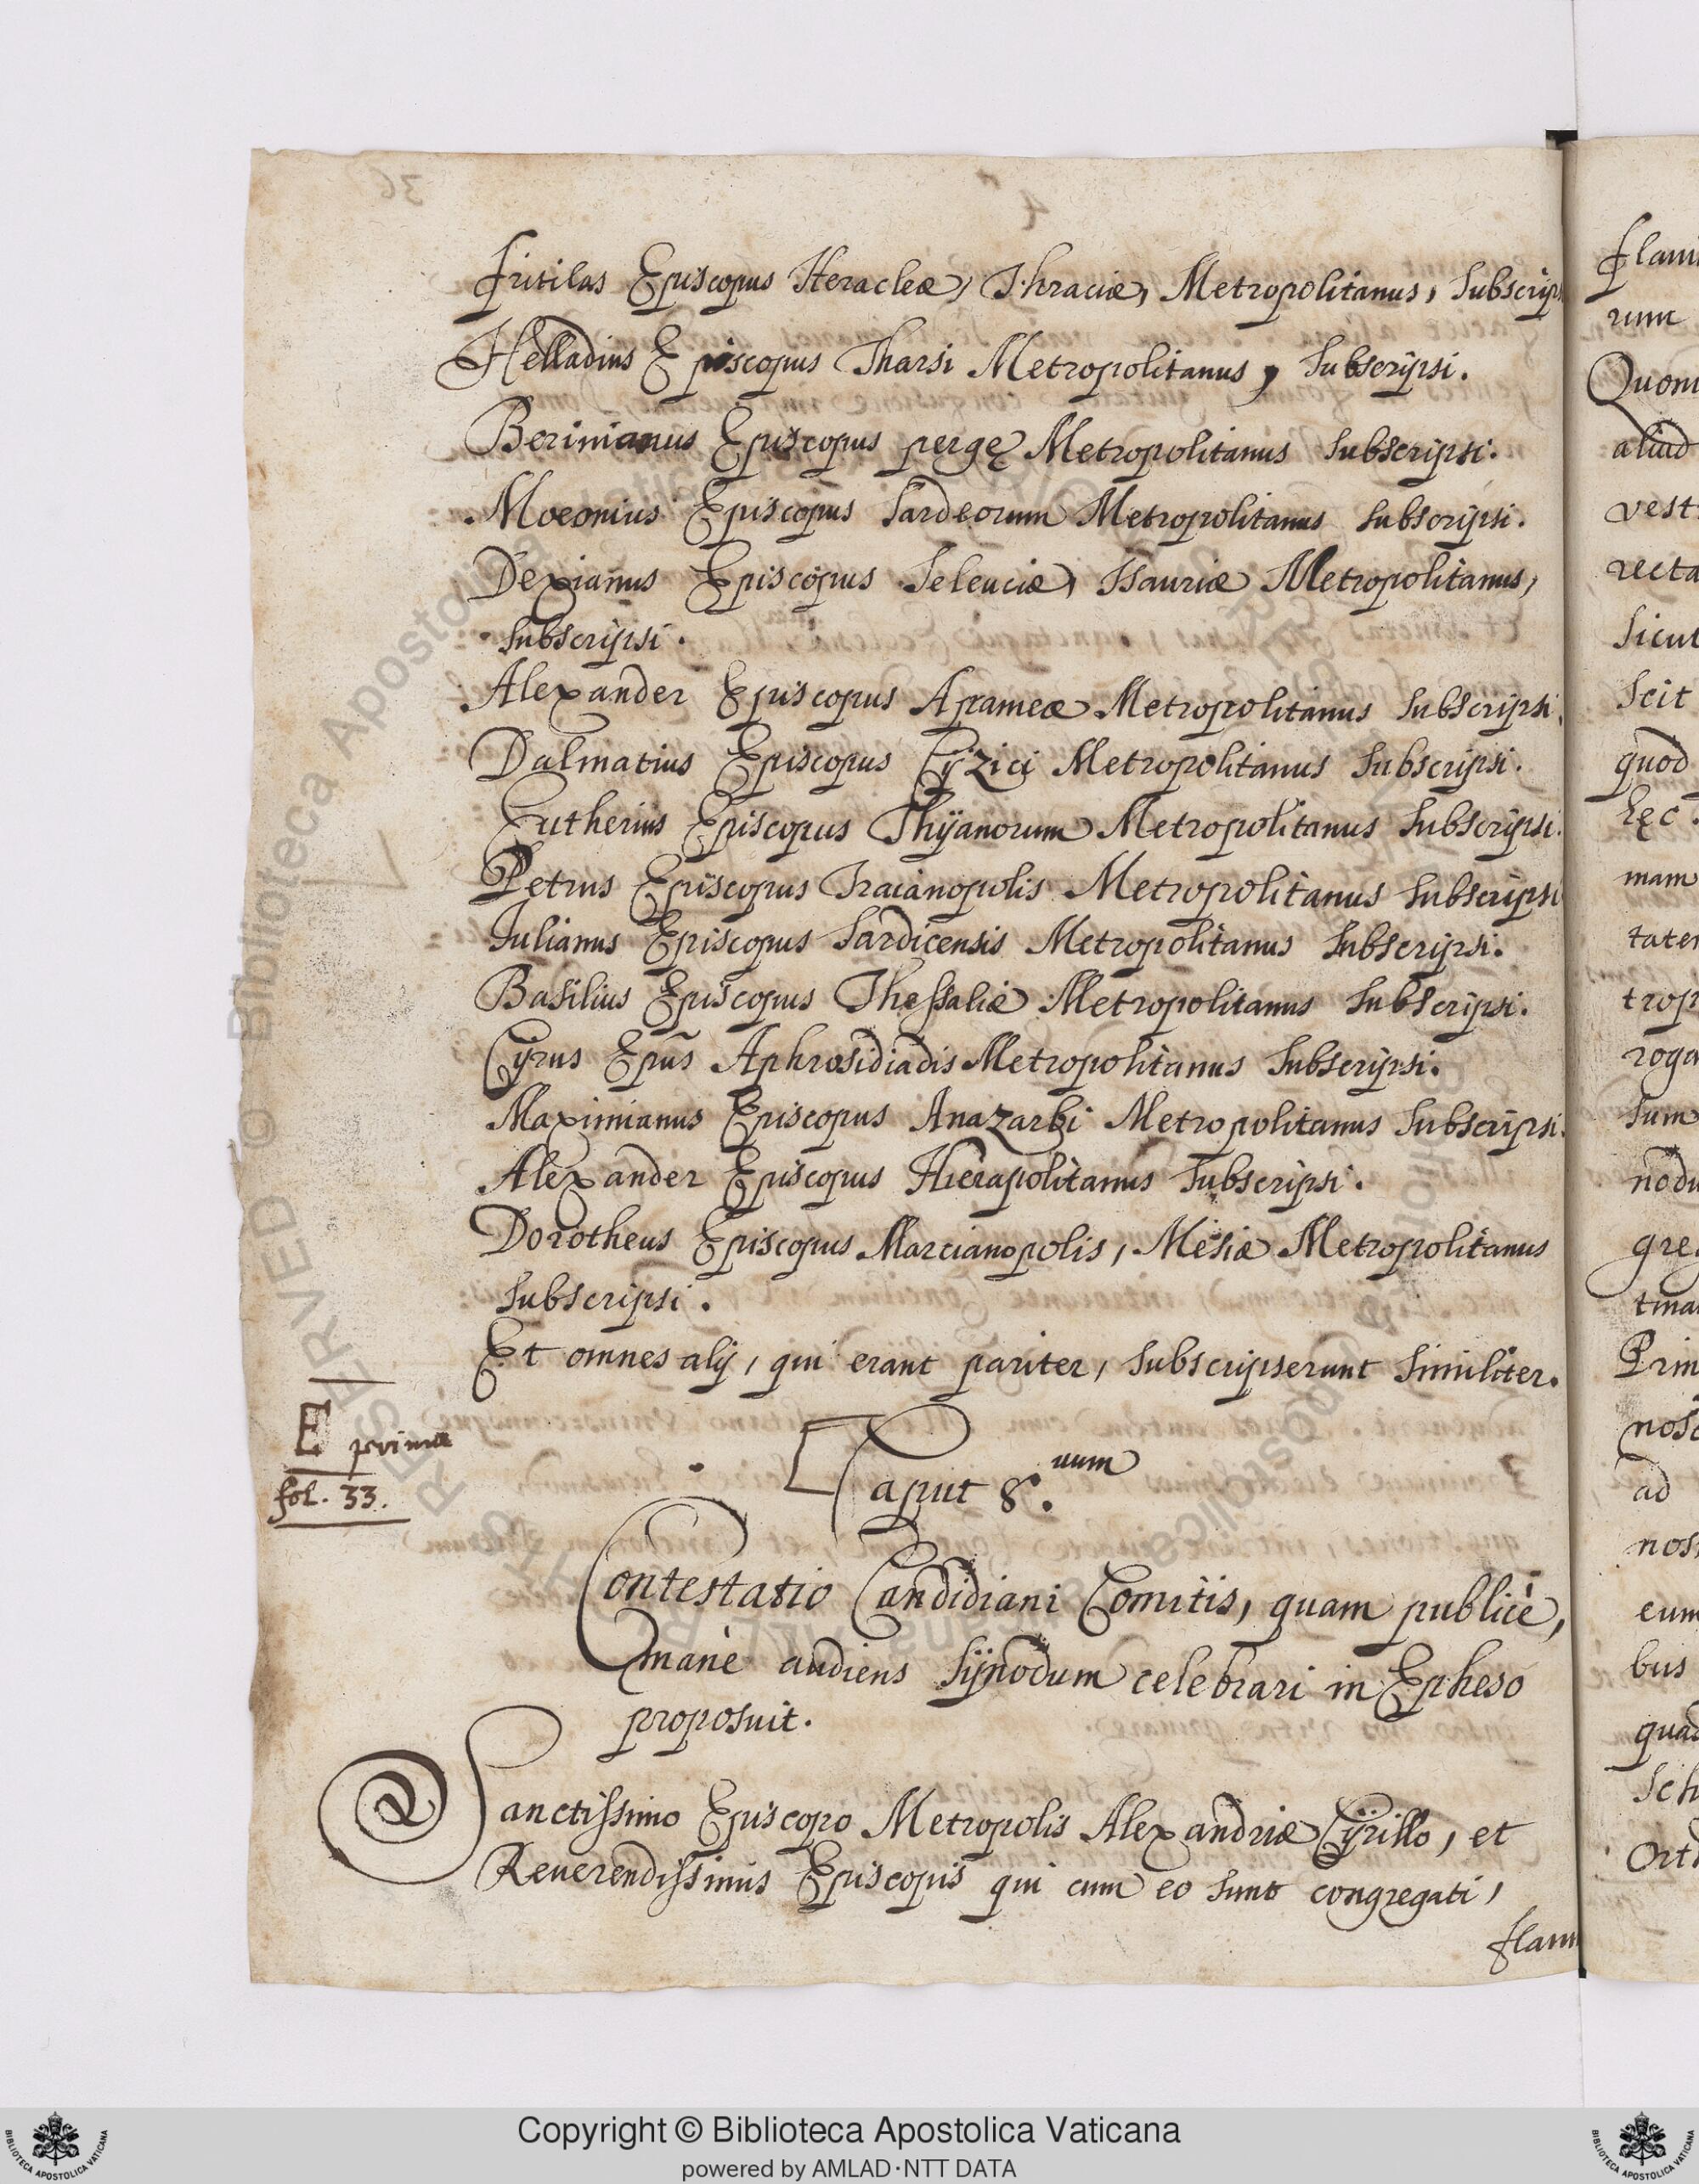 Fritilas Episcopus Heracleæ, Thraciæ, Metropolitanus, Subscrip
Helladius Episcopus Tharsi Metropolitanus, Subscripsi.
Berinianus Episcopus pergę Metropolitanus Subscripsi.
Moeonius Episcopus Sardeorum Metropolitanus Subscripsi.
Dexianus Episcopus Seleuciæ, Isauriæ Metropolitanus,
Subscripsi.
Alexander Episcopus Apameæ Metropolitanus Subscripsi.
Dalmatius Episcopus Cÿzici Metropolitanus Subscripsi.
Eutherius Episcopus Thÿanorum Metropolitanus Subscripsi.
Petrus Episcopus Traianopolis Metropolitanus Subscripsi
Iulianus Episcopus Sardicensis Metropolitanus Subscripsi.
Basilius Episcopus Thessaliæ Metropolitanus Subscripsi.
Cyrus Epũs Aphrosidiadis Metropolitanus Subscripsi.
Maximianus Episcopus Anazarbi Metropolitanus Subscripsi.
Alexander Episcopus Hierapolitanus Subscripsi.
Dorotheus Episcopus Marcianopolis, Mesiæ Metropolitanus
Subscripsi.
Et omnes alij, qui erant pariter, Subscripserunt Similiter.
E primæ
fol. 33.
Caput 8.uum
Contestatio Candidiani Comitis, quam publicè,
manè audiens Sÿnodum celebrari in Epheso
proposuit.
Sanctissimo Episcopo Metropolis Alexandriæ Cÿrillo, et
Reuerendissimis Episcopis qui cum eo sunt congregati,
flaui
flaui
rum
Quoni
aliud
vest
recta
Sicut
Scit
quod
hęc.
mam
tate
trop
roga
Sum
nodu
greg
tina
Prim
nosc
ad
nos
eum
bus
quad
Sch
Orth
Copyright © Biblioteca Apostolica Vaticana
powered by AMLAD·NTT DATA